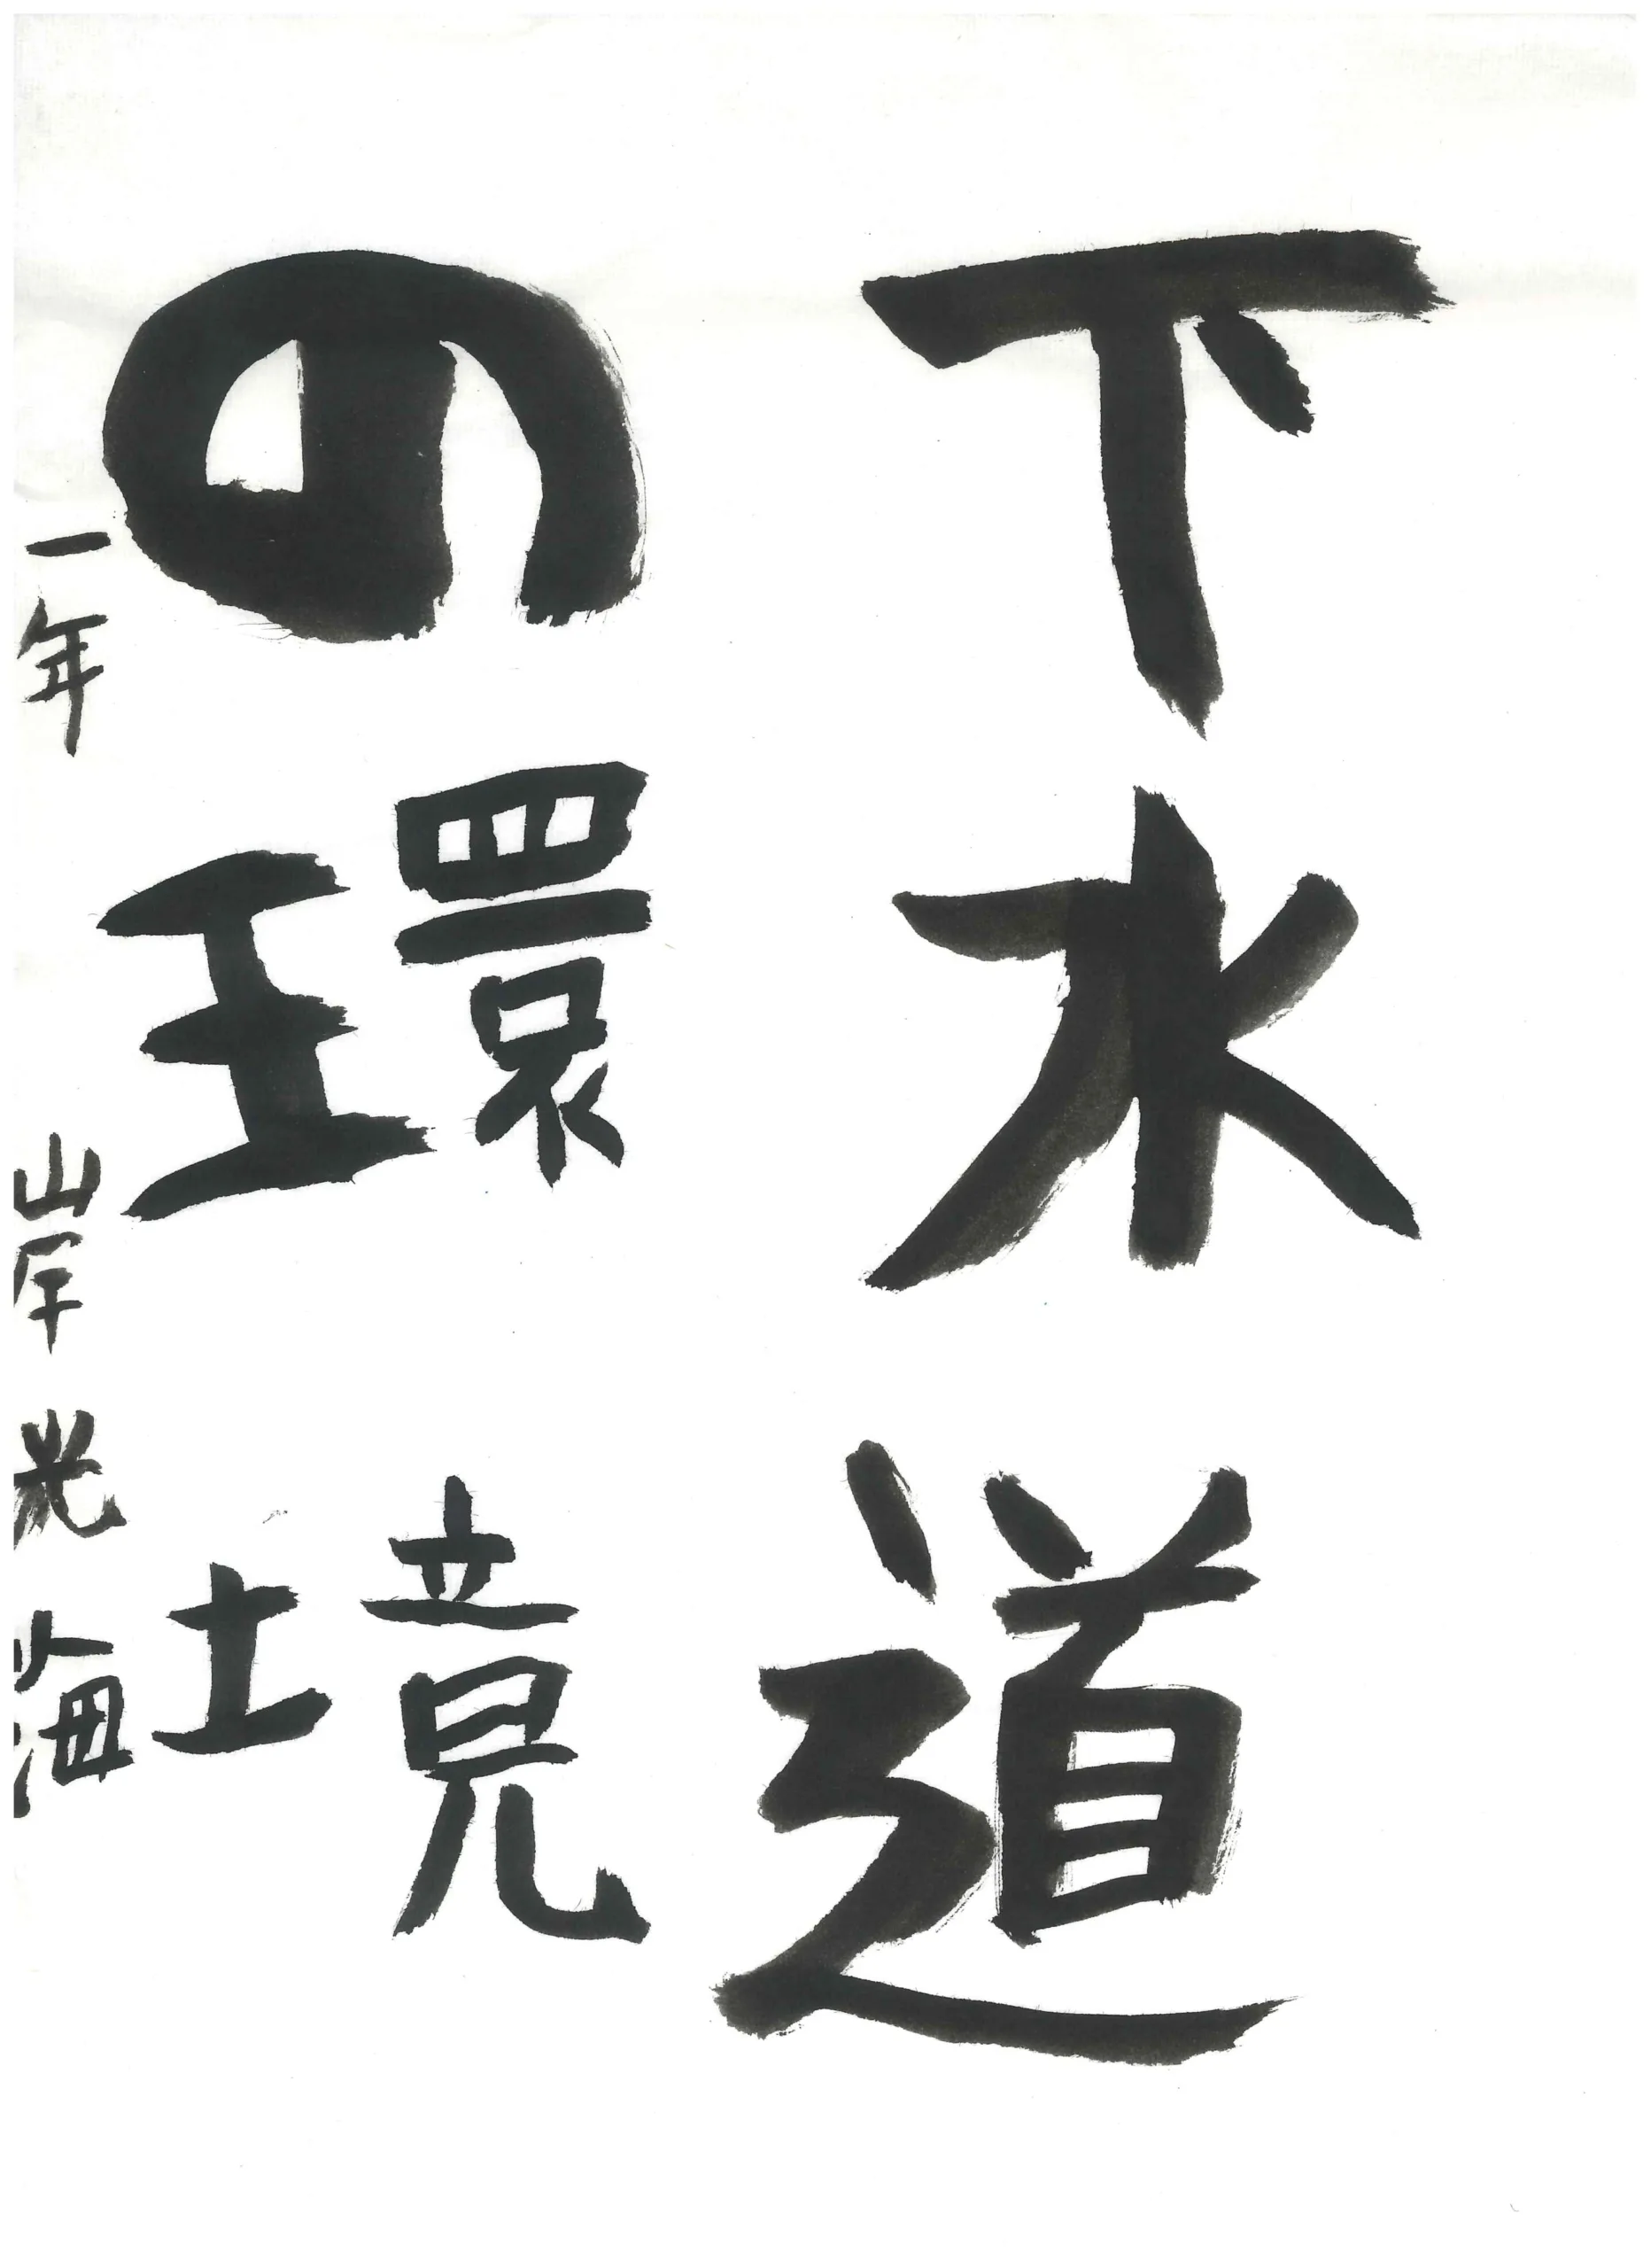 下水道
の環境
一年 山岸光海